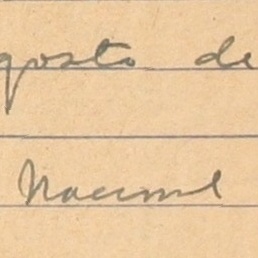 gosto de
Nacional